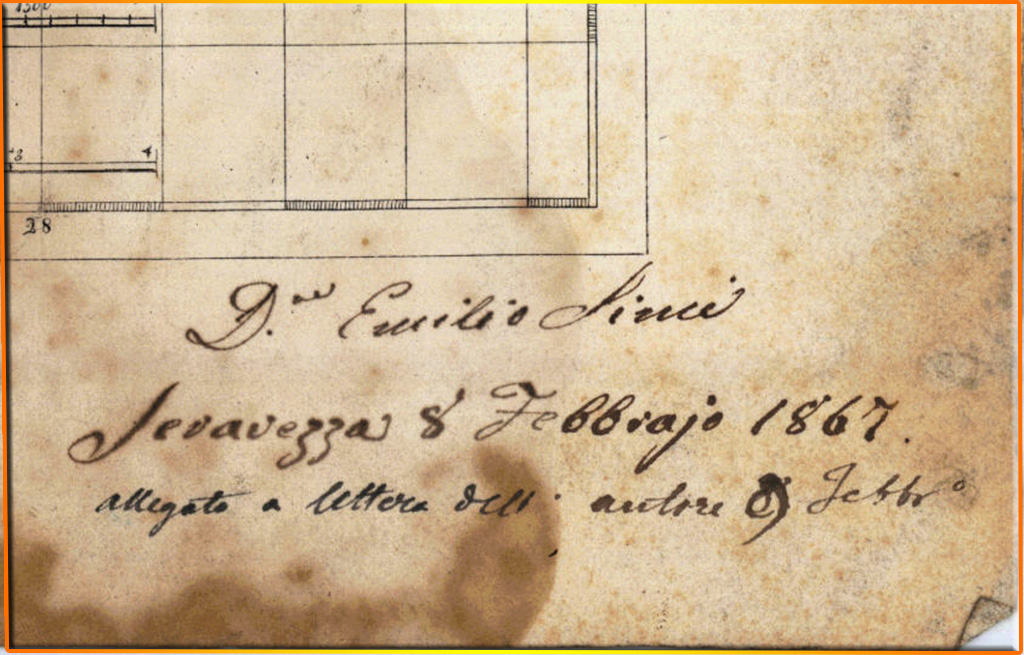 1500
3 4
28
D.re Emilio Simi
Seravezza 8 Febbrajo 1867.
allegato a lettera dell' autore Febbro